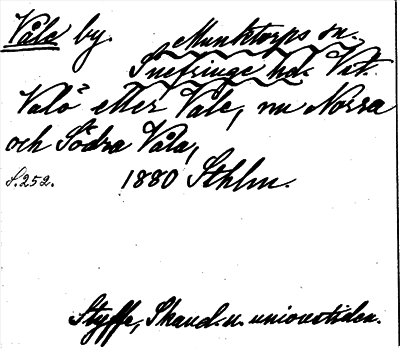 Våla by. Munktorps sn.
Snefringe hd. Vstm.
Valö eller Vale, nu Norra
och Södra Våla,
S. 252. 1880 Sthlm.
Styffe, Skand. u. unionstiden.